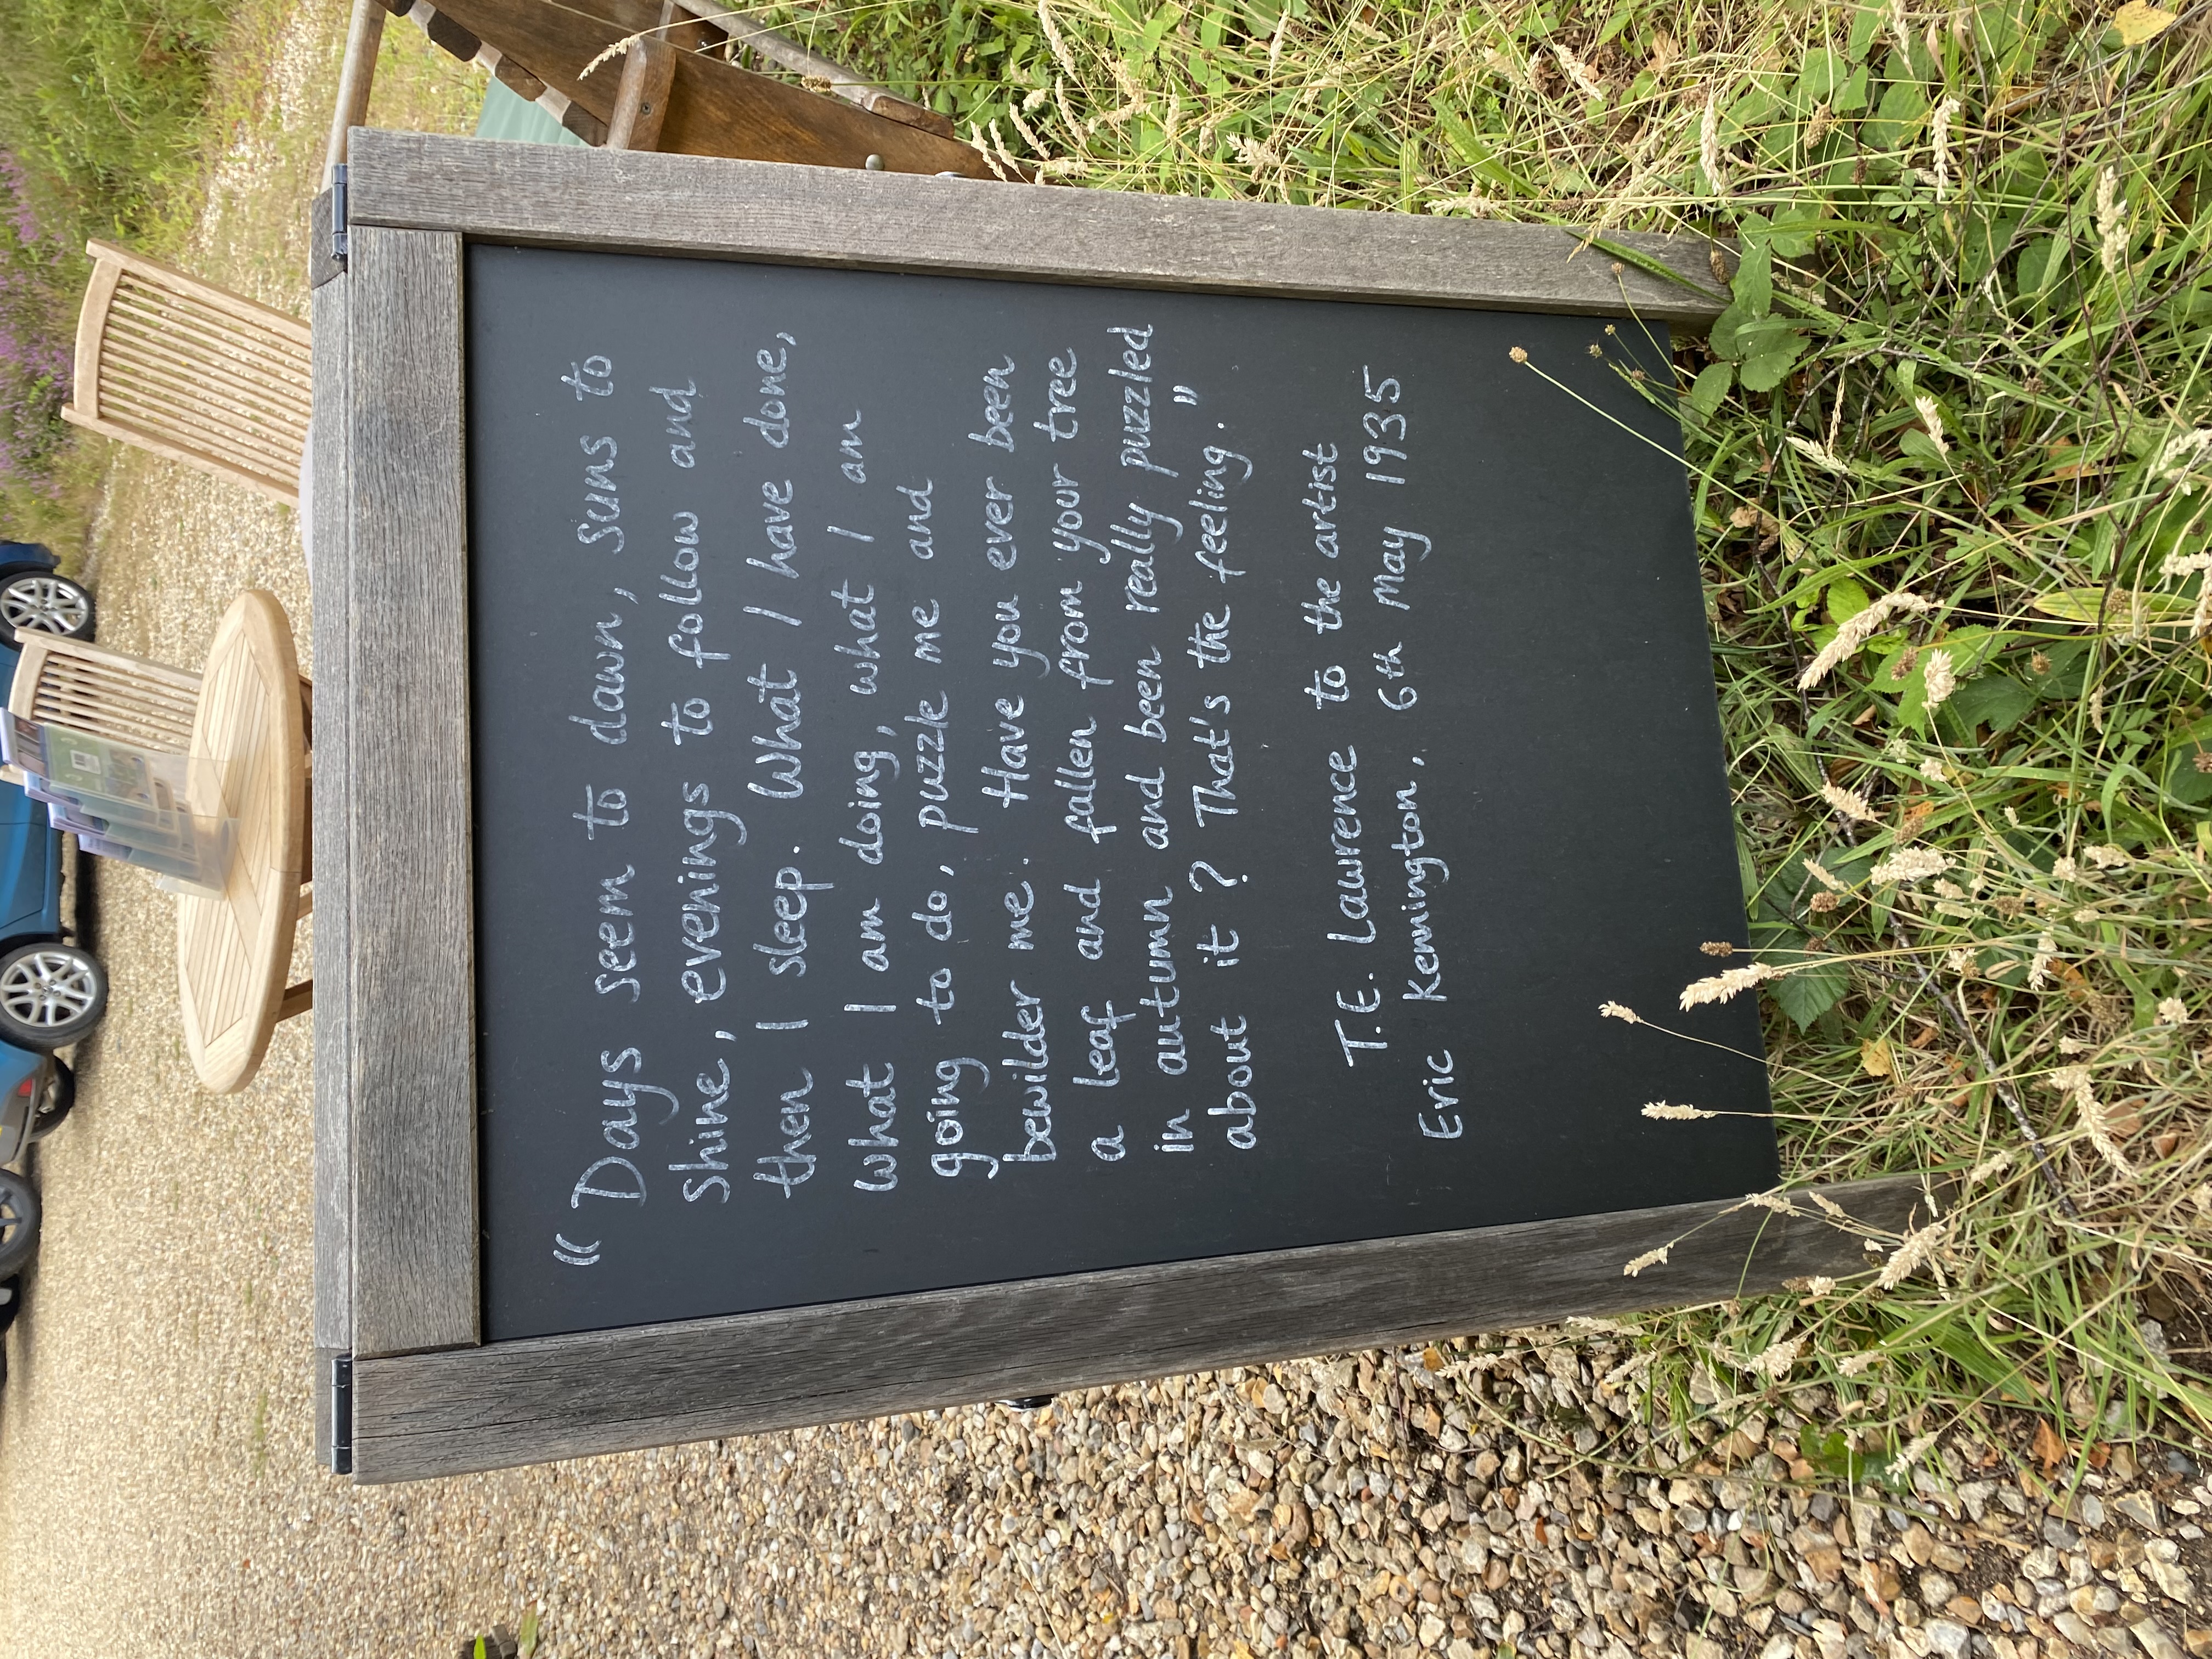 “Days seem to dawn, suns to
shine, evenings to follow and
then I sleep. What I have done,
what I am doing, what I am
going to do, puzzle me and
bewilder me. Have you ever been
a leaf and fallen from your tree
in autumn and been really puzzled
about it? That's the feeling.”
T.E. Lawrence to the artist
Eric Kennington, 6th May 1935